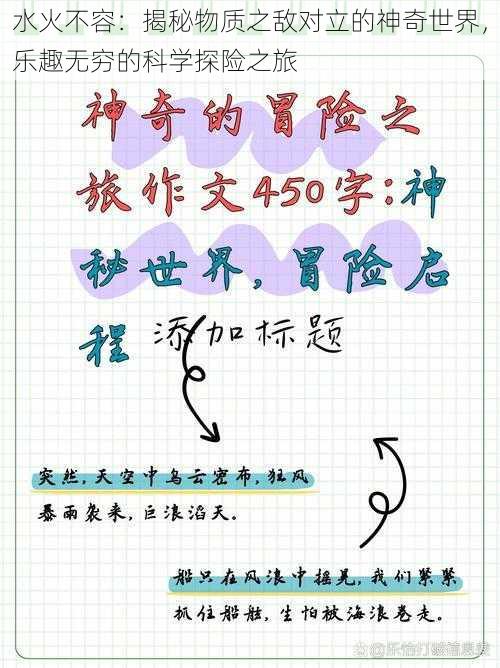 水火不容：揭秘物质之敌对立的神奇世界，
乐趣无穷的科学探险之旅
神奇的冒险之
旅作文450字：神
秘世界，冒险启
程
添加标题
突然，天空中乌云密布，狂风
暴雨袭来，巨浪滔天。
船只在风浪中摇晃，我们紧紧
抓住船舷，生怕被海浪卷走。